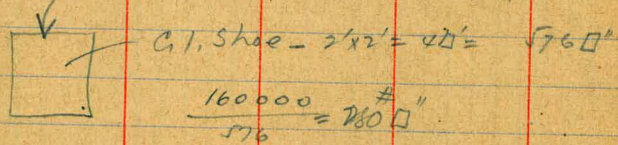 C.I. Shoe - 2'x2' = 4□' = 576□"
160000 / 576 = 280#□"